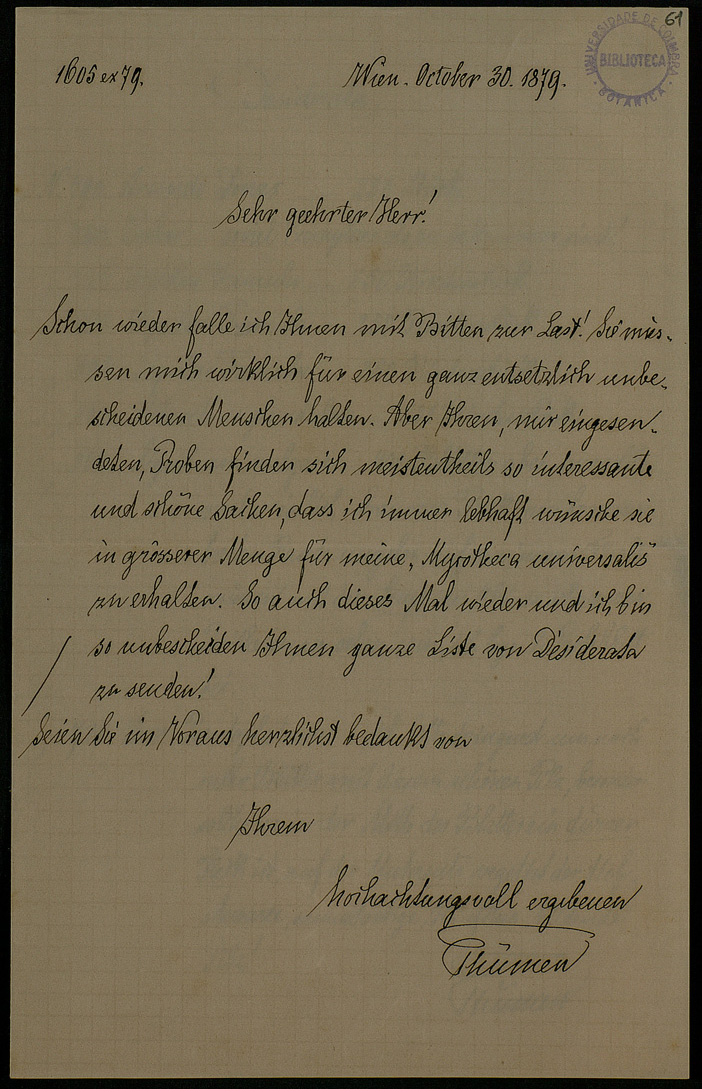 61
UNIVERSIDADE DE COIMBRA
BIBLIOTECA
BOTANICA
1605 ex 79.
Wien. October 30. 1879.
Sehr geehrter Herr!
Schon wieder falle ich Ihnen mit Bitten zur Last! Sie müs-
sen mich wirklich für einen ganz entsetzlich unbe-
scheidenen Menschen halten. Aber Ihren, mir eingesen-
deten, Proben finden sich meistentheils so interessante
und schöne Sachen, dass ich immer lebhaft wünsche sie
in grösserer Menge für meine „Mycotheca universalis"
zu erhalten. So auch dieses Mal wieder und ich bin
so unbescheiden Ihnen ganze Liste von Desiderata
zu senden!
Seien Sie im Voraus herzlichst bedankt von
Ihrem
hochachtungsvoll ergebenen
Thümen